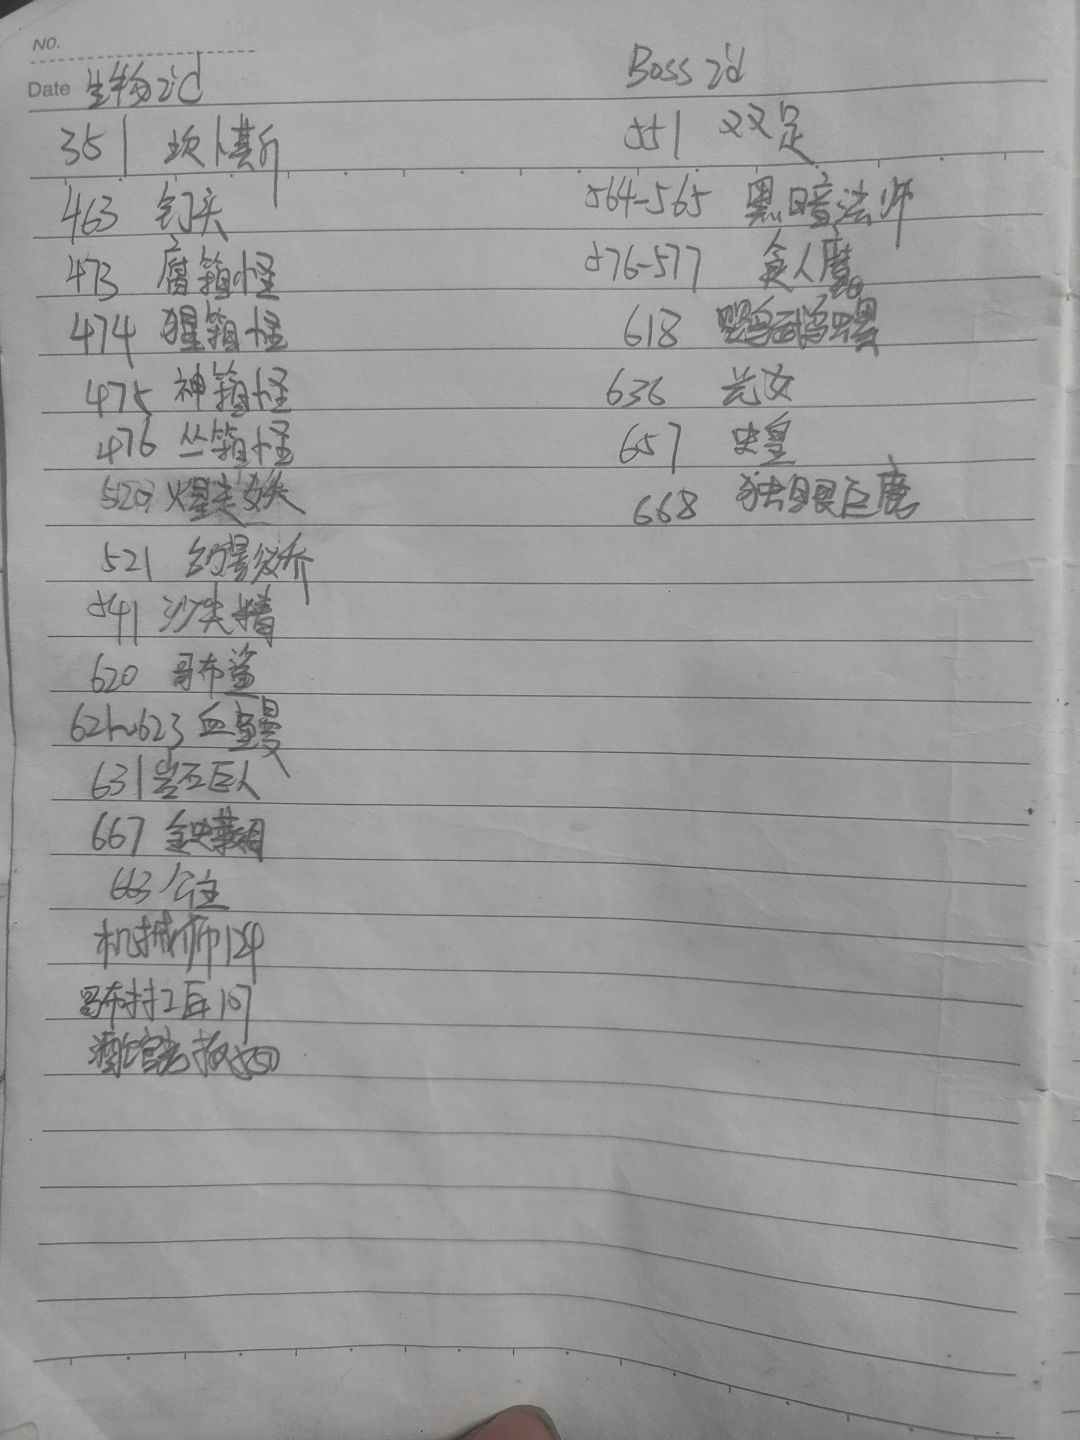 NO.
Date 生物id
351 坎卜斯
463 钉头
473 腐箱怪
474 猩箱怪
475 神箱怪
476 丛箱怪
520 火星走妖
521
541 沙尖精
620 哥布鲨
621~623 血鳗
631 岩石巨人
667 金史莱姆
663 公主
机械师124
哥布林工匠107
酒馆老板550
Boss id
551 双足
564-565 黑暗法师
576-577 食人魔
618
636 光女
657 史皇
668 独眼巨鹿